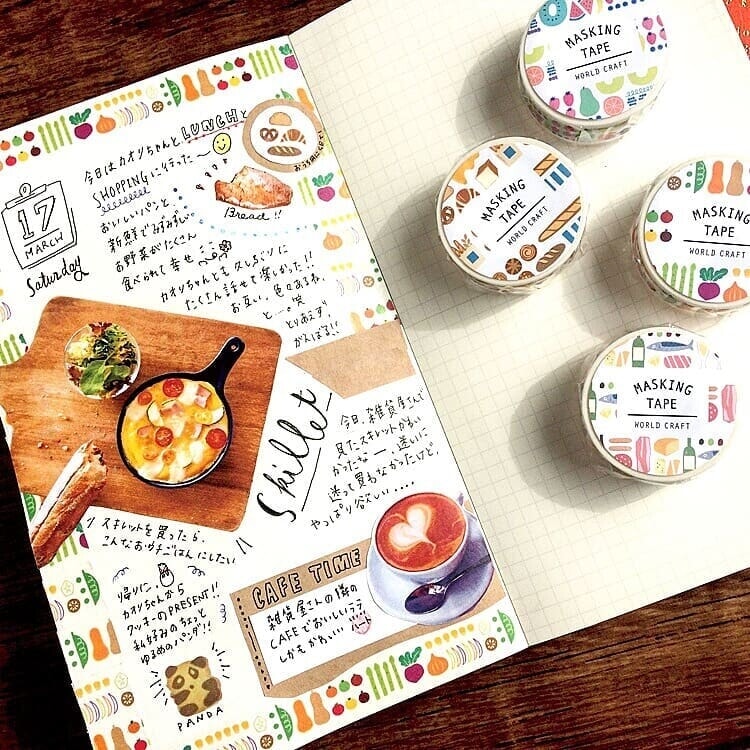 17
MARCH
Saturday
今日はカオリちゃんとLUNCHと
SHOPPINGに行った
おいしいパンと
新鮮でみずみずしい
お野菜がたくさん
食べられて幸せ
カオリちゃんとも久しぶりに
たくさん話せて楽しかった!!
お互い、色々あるね
と…笑
とりあえず、
がんばる!!
Bread!!
Skillet
今日、雑貨屋さんで
見たスキレットかわい
かったなー、迷いに
迷って買わなかったけど、
やっぱり欲しい....
スキレットを買ったら、
こんなおウチごはんにしたい
帰りに、
カオリちゃんから
クッキーのPRESENT!!
私好みのちょっと
ゆるめのパンダ!!
PANDA
CAFE TIME
雑貨屋さんの隣の
CAFEでおいしいラテ
しかもかわいいハート
MASKING
TAPE
WORLD CRAFT
MASKING
TAPE
WORLD CRAFT
MASKING
TAPE
WORLD CRAFT
MASKING
TAPE
WORLD CRAFT